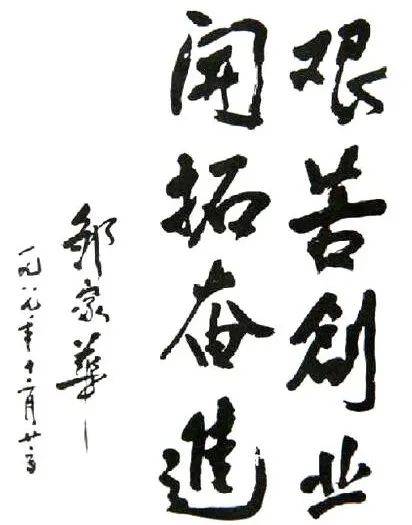 艰苦创业
開拓奋進
邹家華
一九八九年十二月廿二日